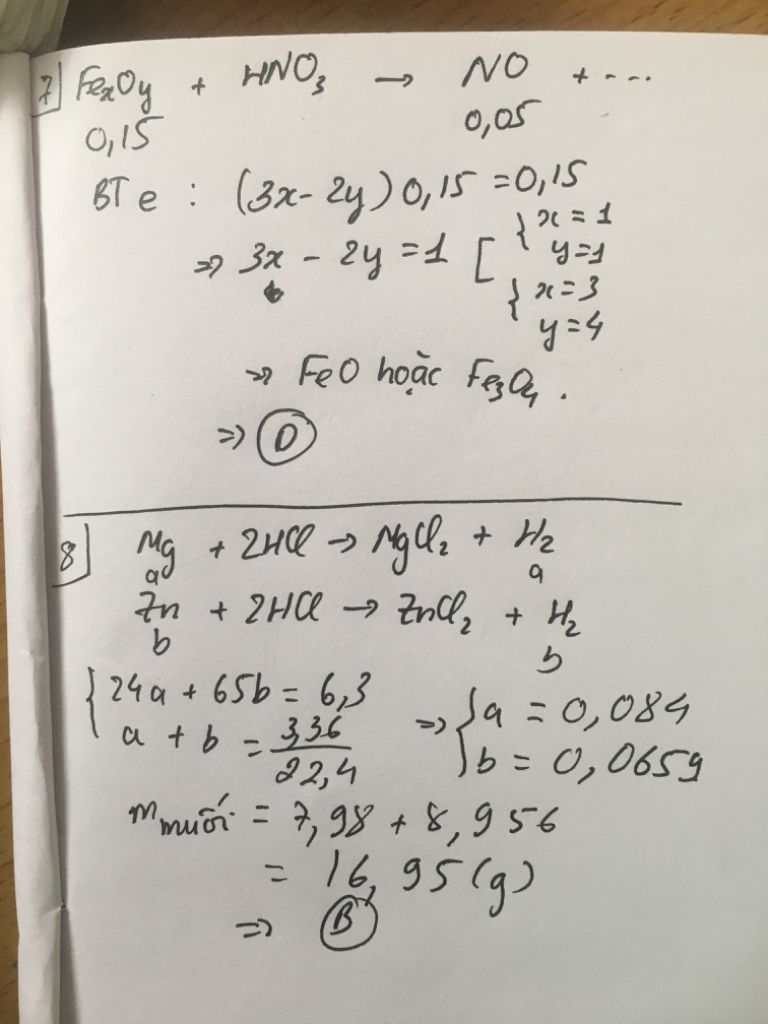 7] FexOy + HNO3 → NO + ....
0,15 0,05
BT e : (3x - 2y) 0,15 = 0,15
⇒ 3x - 2y = 1 [ { x = 1
y = 1
{ x = 3
y = 4
⇒ FeO hoặc Fe3O4 .
⇒ D
8] Mg + 2HCl → MgCl2 + H2
a a
Zn + 2HCl → ZnCl2 + H2
b b
{ 24a + 65b = 6,3
a + b = 3,36 / 22,4
⇒ { a = 0,084
b = 0,0659
m muối = 7,98 + 8,956
= 16,95 (g)
⇒ B